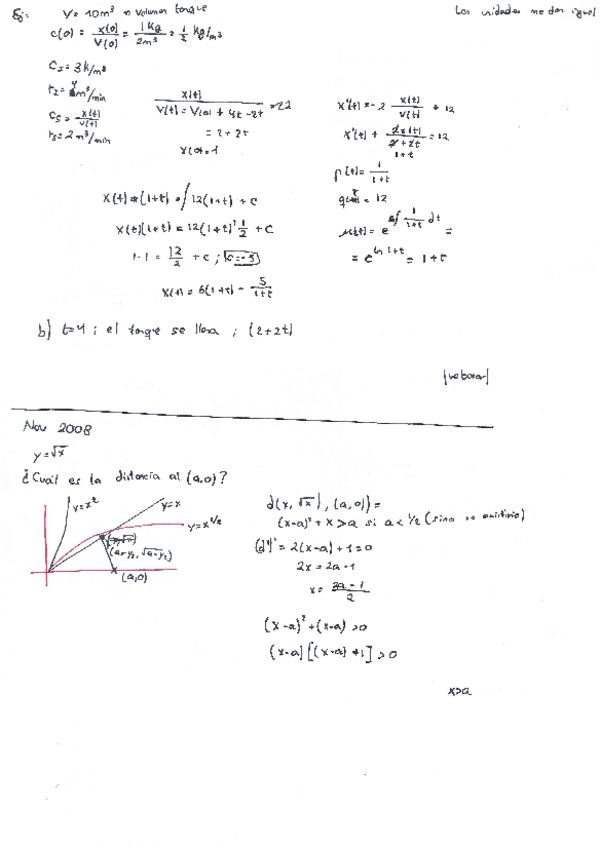 V = 10m³ → volumen tanque
Las unidades me dan igual
c(0) = x(0)/V(0) = 1 kg/2m³ = 1/2 kg/m³
C_I = 3 k/m³
r_I = 4 m³/min
C_S = x(t)/V(t)
r_S = 2 m³/min
x(t)
V(t) = V(0) + 4t - 2t
= 2 + 2t
x(0) = 1
x'(t) = -2 x(t)/V(t) + 12
x'(t) + 2x(t)/2+2t = 12
1+t
p(t) = 1/1+t
= 12
μ(t) = e^∫ 1/1+t dt =
= e^ln 1+t = 1+t
x(t) (1+t) = ∫12(1+t) + c
x(t)(1+t) = 12(1+t)² 1/2 + c
1·1 = 12/2 + c ; c = -5
x(t) = 6(1+t) - 5/1+t
b) t=4 ; el tanque se llena ; (2+2t)
Nov 2008
y = √x
¿Cuál es la distancia al (a,0)?
y=x²
y=x
y=x^1/2
(a-1/2, √a-1/2)
(a,0)
d(x, √x), (a,0)) =
(x-a)² + x > a si a < 1/2 (sino no existiría)
(d²)' = 2(x-a) + 1 = 0
2x = 2a - 1
x = 2a - 1/2
(x-a)² + (x-a) > 0
(x-a) [(x-a) + 1] > 0
x>a